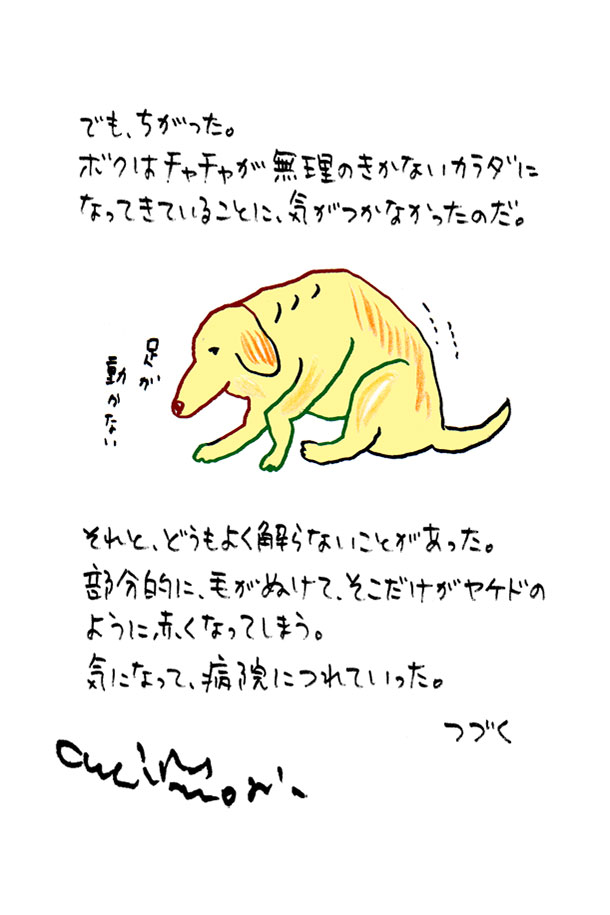 でも、ちがった。
ボクはチャチャが無理のきかないカラダに
なってきていることに、気がつかなかったのだ。
足が
動かない
それと、どうもよく解らないことがあった。
部分的に、毛がぬけて、そこだけがヤケドの
ように赤くなってしまう。
気になって、病院につれていった。
つづく